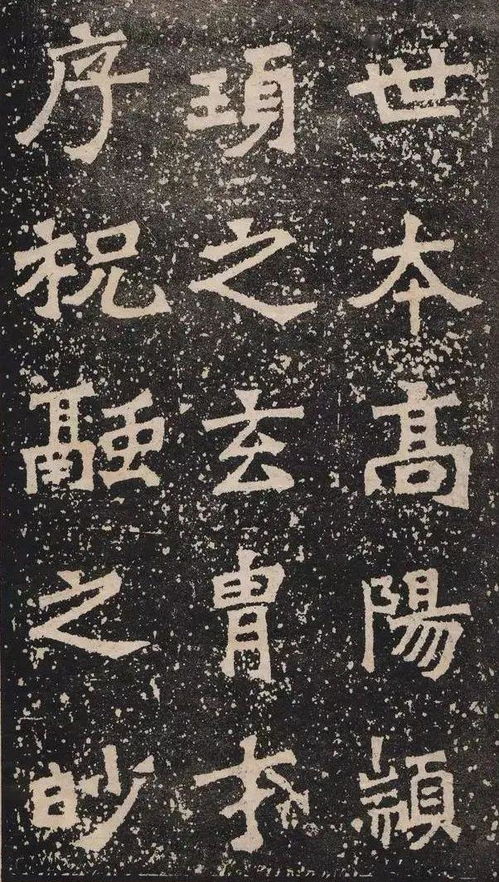 世本髙陽顓
頊之玄胄才
序祝融之眇